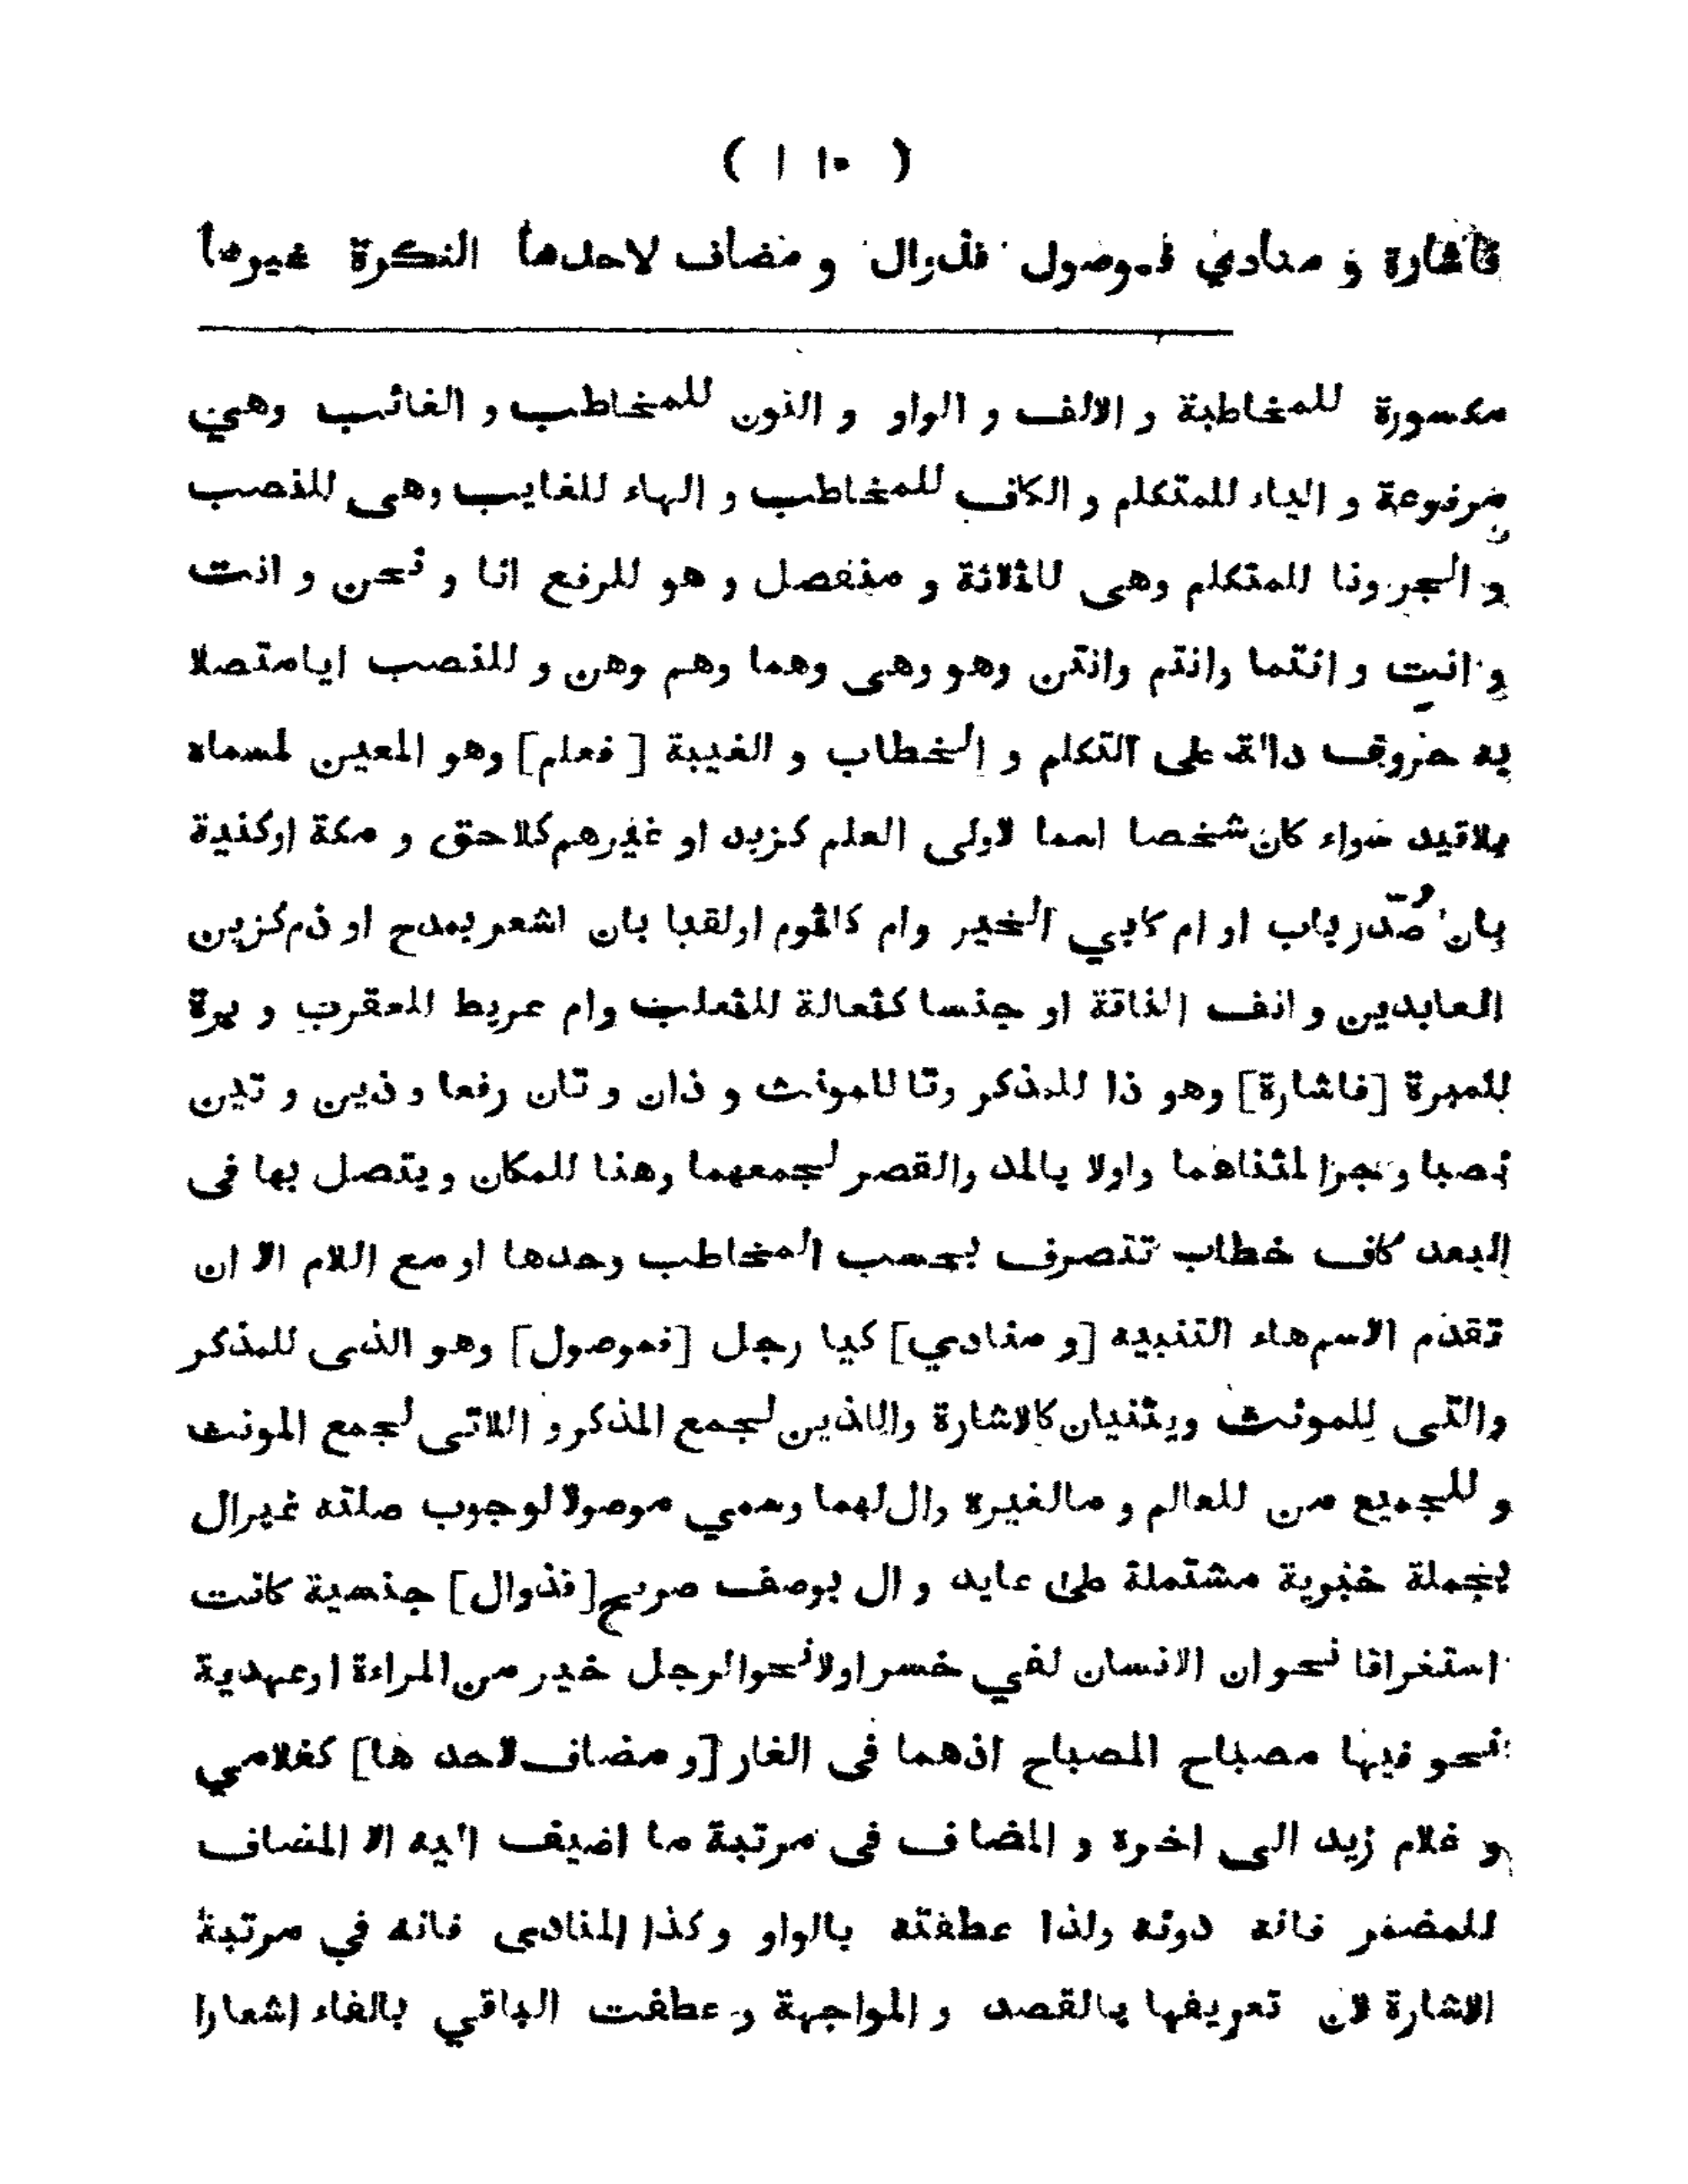 ( ١١٠ )
فاشارة و منادي فموصول فذوال و مضاف لاحدها النكرة غيرها
مكسورة للمخاطبة و الالف و الواو و النون للمخاطب و الغائب وهي
مرفوعة و الياء للمتكلم و الكاف للمخاطب و الهاء للغايب وهى للنصب
و الجر ونا للمتكلم وهى للثلاثة و منفصل و هو للرفع انا و نحن و انت
و انتِ و انتما وانتم وانتن وهو وهى وهما وهم وهن و للنصب ايا متصلا
به حروف دالة على التكلم و الخطاب و الغيبة [ فعلم] وهو المعين لمسماه
بلاقيد سواء كان شخصا اسما لاولى العلم كزيد او غيرهم كلاحق و مكة اوكنية
بان صُدّر باب او ام كابي الخير وام كلثوم اولقبا بان اشعر بمدح او ذم كزين
العابدين و انف الناقة او جنسا كثعالة للثعلب وام عريط للعقرب و برة
للمبرة [فاشارة] وهو ذا للمذكر وتا للمونث و ذان و تان رفعا و ذين و تين
نصبا و جرا لمثناهما واولا بالمد والقصر لجمعهما وهنا للمكان و يتصل بها فى
البعد كاف خطاب تتصرف بحسب المخاطب وحدها او مع اللام الا ان
تقدم الاسم هاء التنبيه [و منادي] كيا رجل [فموصول] وهو الذى للمذكر
والتى للمونث ويثنيان كالاشارة والذين لجمع المذكر و اللاتى لجمع المونث
و للجميع من للعالم و مالغيره وال لهما وسمي موصولا لوجوب صلته غيرال
بجملة خبرية مشتملة على عايد و ال بوصف صريح [فذوال] جنسية كانت
استغراقا نحو ان الانسان لفي خسر اولا نحو الرجل خير من المراءة اوعهدية
نحو فيها مصباح المصباح اذهما فى الغار [و مضاف لاحد ها] كغلامي
و غلام زيد الى اخره و المضاف فى مرتبة ما اضيف اليه الا المضاف
للمضمر فانه دونه ولذا عطفته بالواو وكذا المنادى فانه في مرتبة
الاشارة لان تعريفها بالقصد و المواجهة و عطفت الباقي بالفاء اشعارا